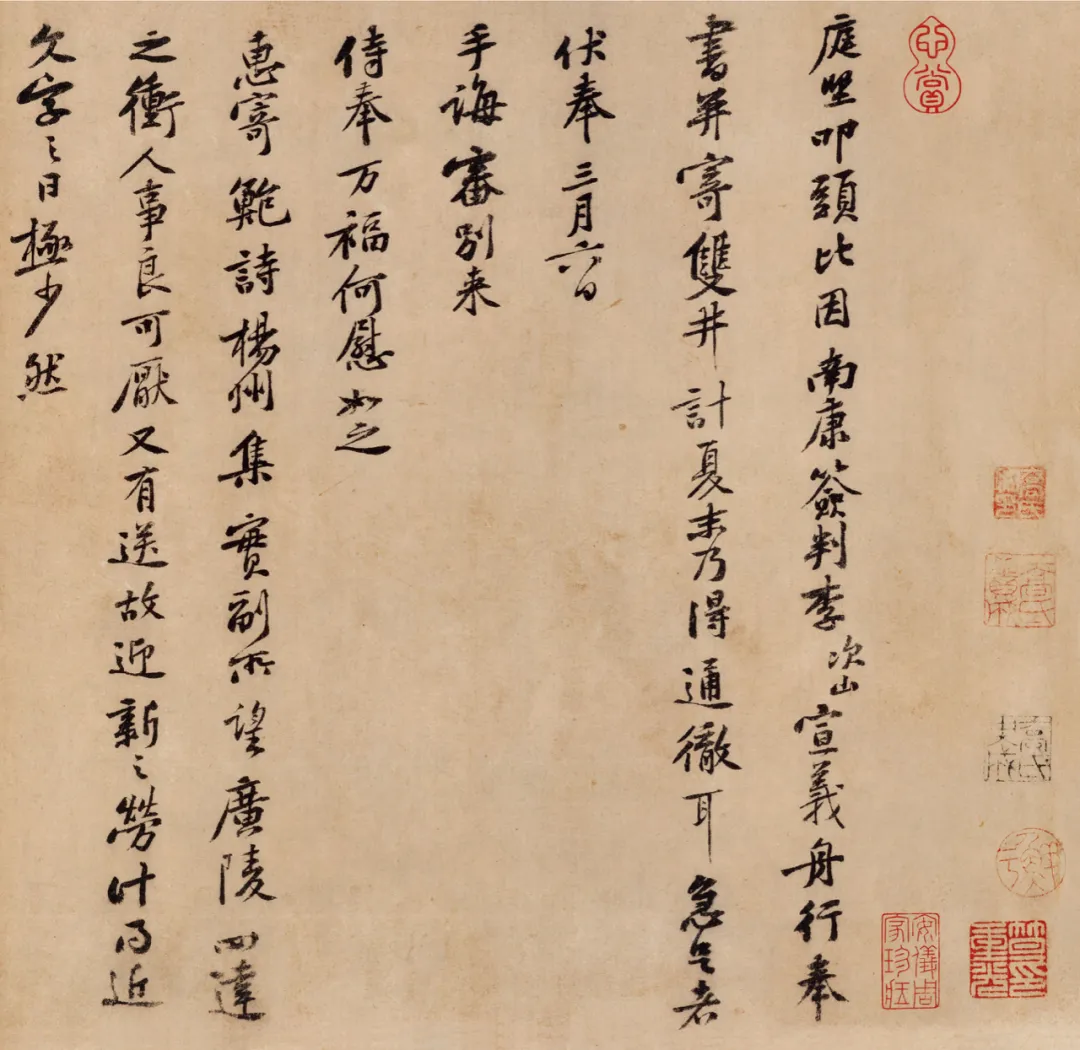 庭堅叩頭比因南康簽判李次山宣義舟行奉
書并寄雙井計夏末乃得通徹耳急足者
伏奉三月六日
手誨審別来
侍奉万福何慰如之
惠寄鮑詩楊州集實副所望廣陵四達
之衝人事良可厭又有送故迎新之勞計得近
文字之日極少然
心賞
安儀周家珍藏